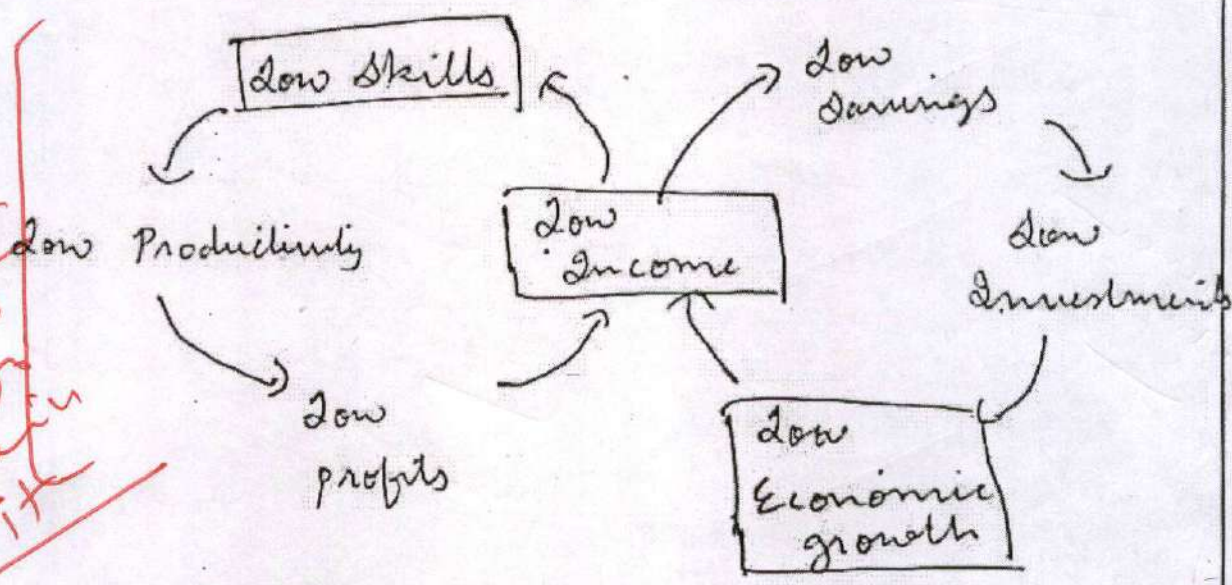 Low Skills
Low Savings
Low Productivity
Low Income
Low Investments
Low profits
Low Economic growth